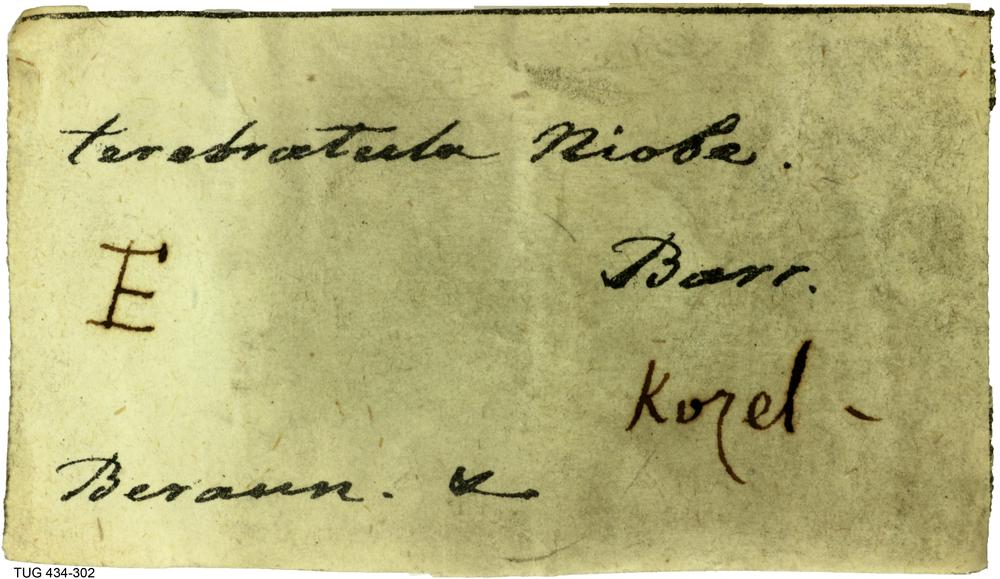 terebratula Niobe.
E
Barr.
Kozel -
Beraun.
TUG 434-302